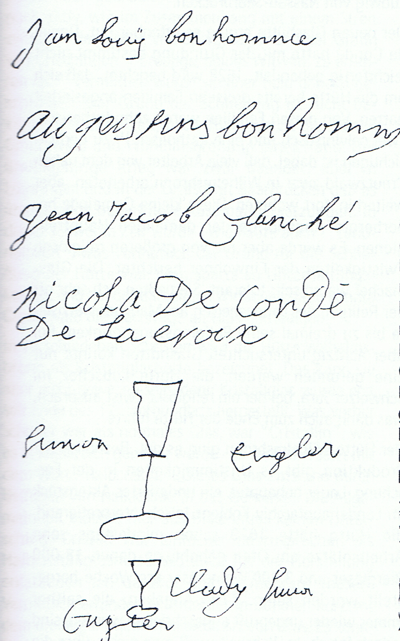 Jan Louÿ bonhomme
augustins bonhomm
Jean Jacob Clanché
nicola De Condé
De Lacroix
Simon Engler
Clady
Engler